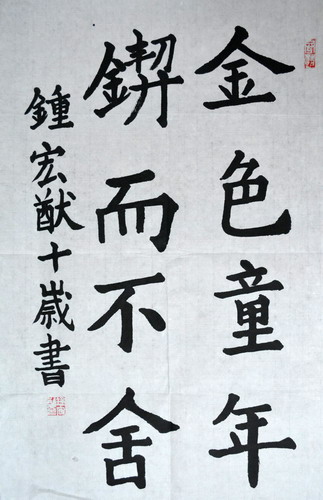 金色童年
鍥而不舍
鍾宏猷十歲書